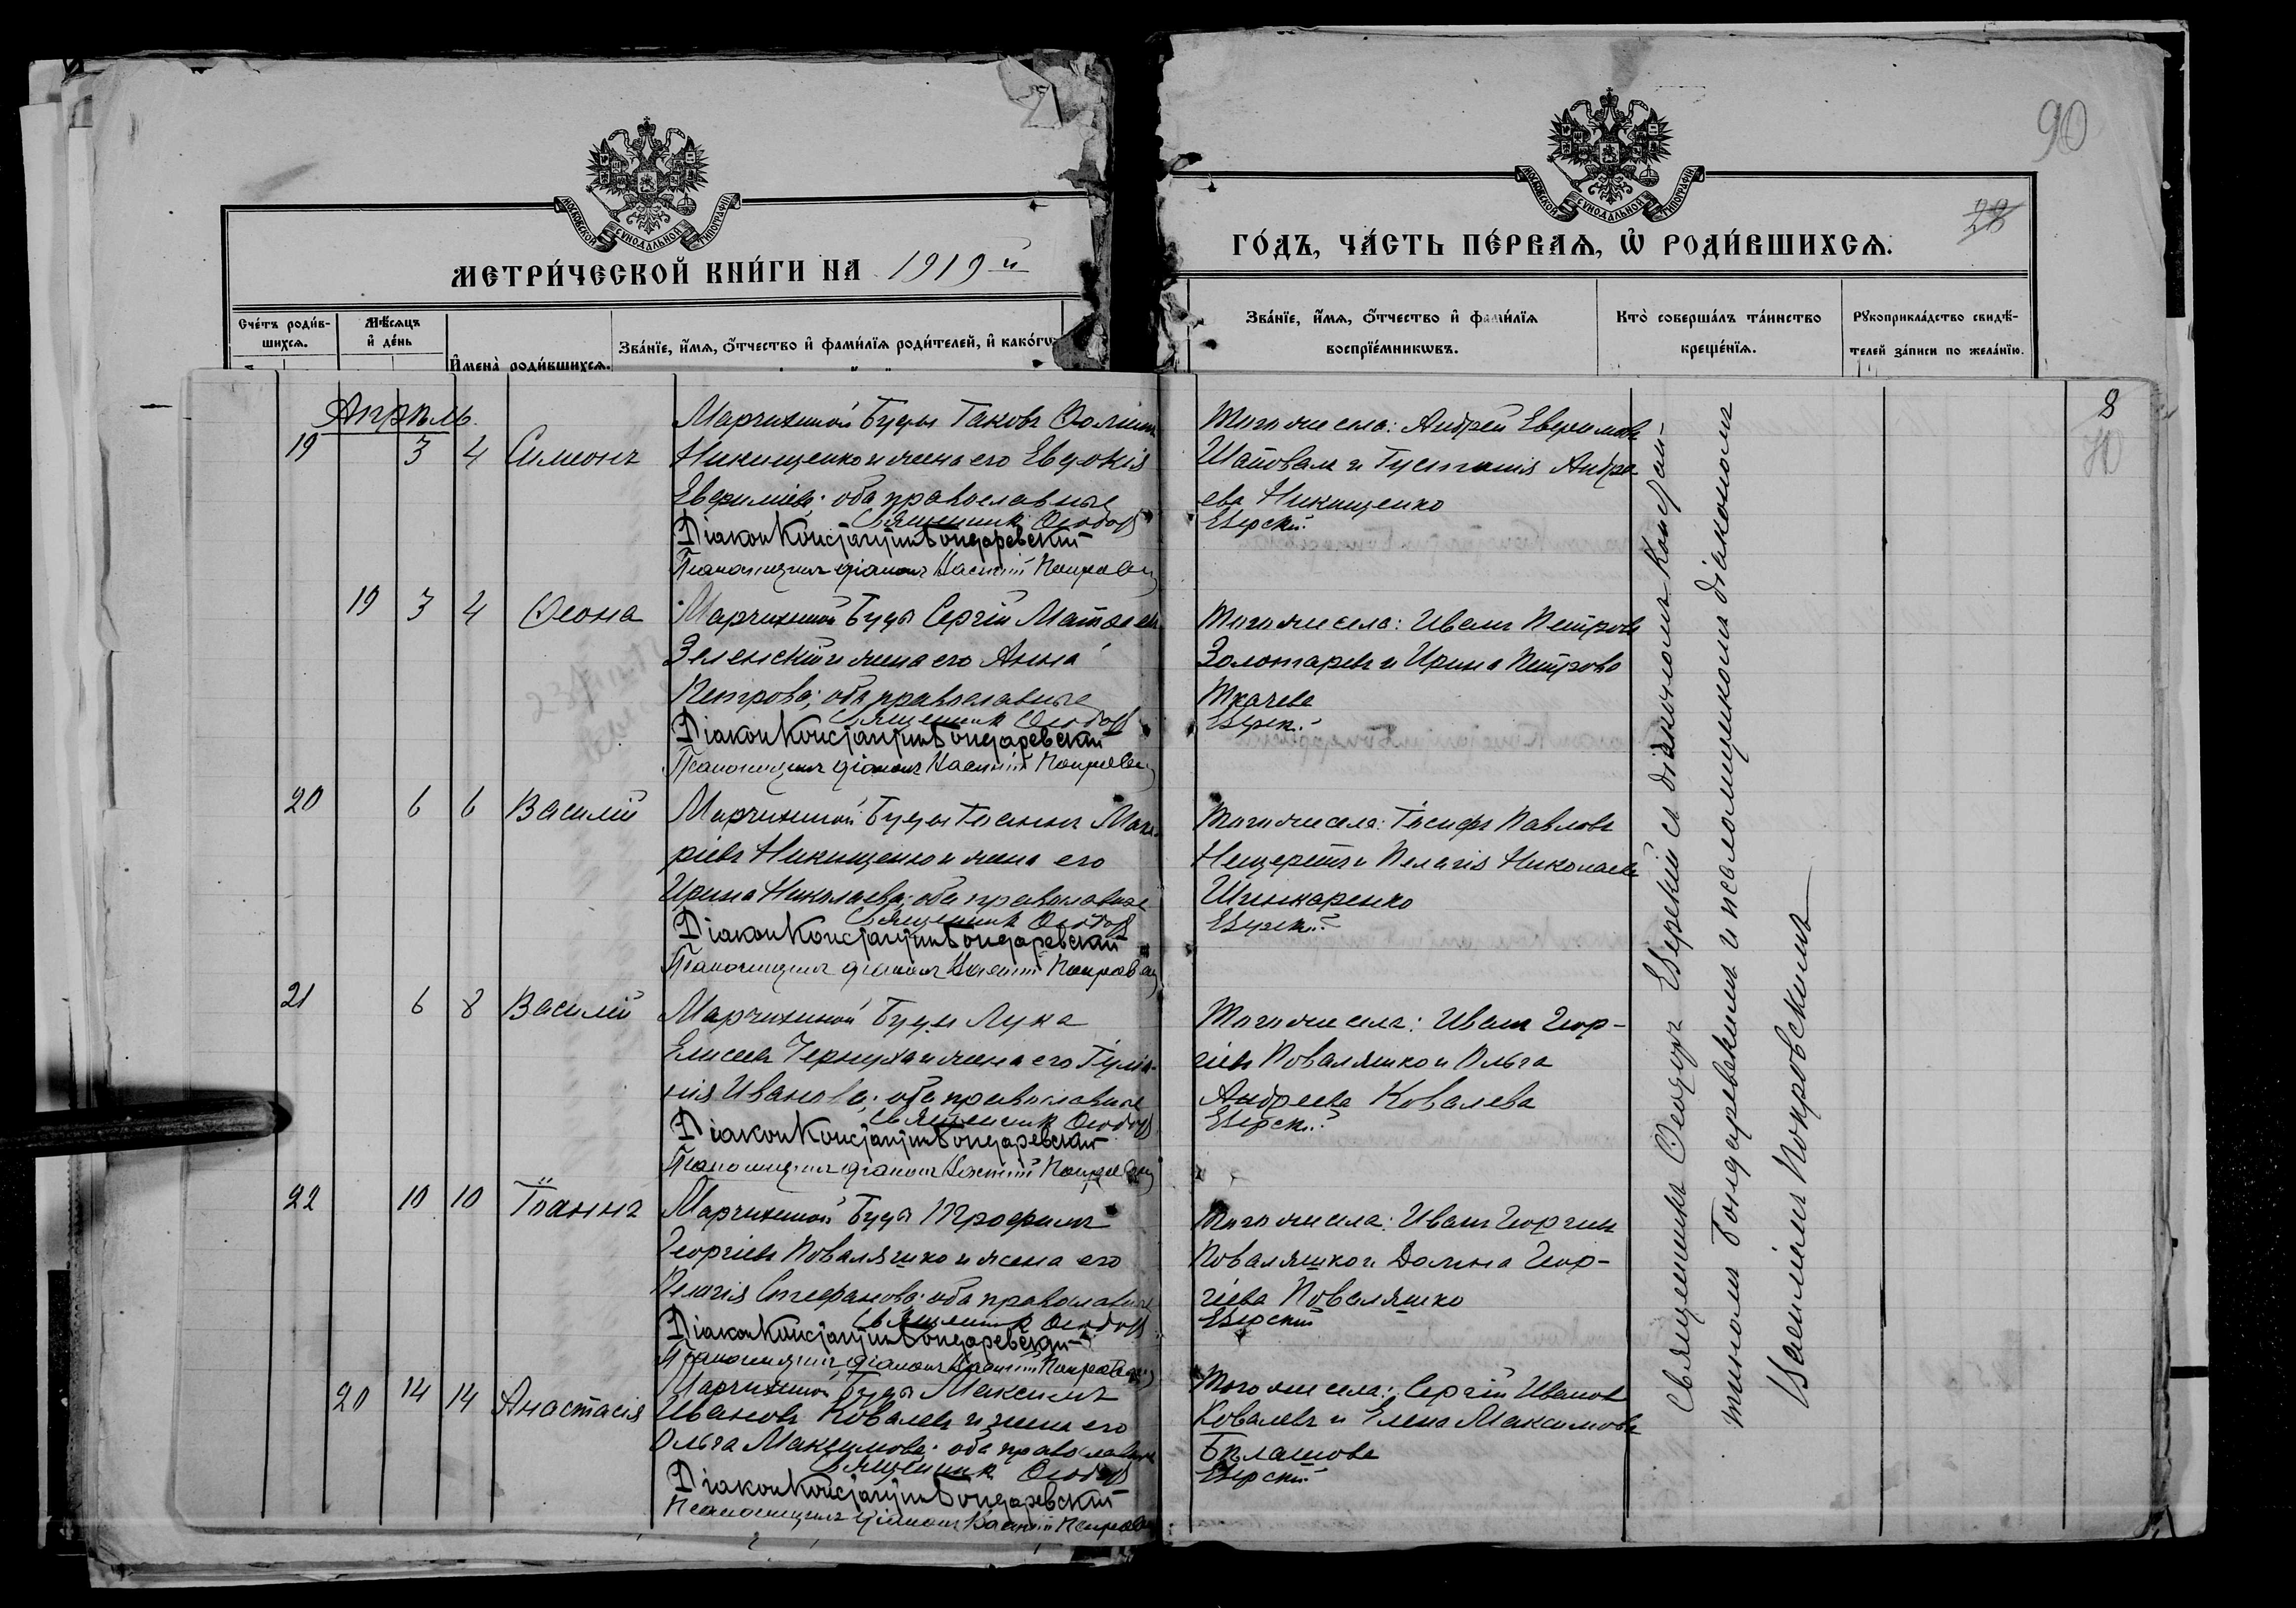 90
28
МОСКОВСКОЙ СУНОДАЛЬНОЙ ТИПОГРАФІИ
МОСКОВСКОЙ СУНОДАЛЬНОЙ ТИПОГРАФІИ
МЕТРИ́ЧЕСКОЙ КНИ́ГИ НА 1919 й
ГО́ДЪ, ЧА́СТЬ ПЕ́РВАѦ, Ѡ҆ РОДИ́ВШИХСѦ.
Сче́тъ роди́в-
шихсѧ.
Мѣ́сѧцъ
и҆ де́нь
И҆мена̀ роди́вшихсѧ.
Зва́нїе, и҆́мѧ, ѻ҆́тчество и҆ фами́лїѧ роди́телей, и҆ како́гѡ
Зва́нїе, и҆́мѧ, ѻ҆́тчество и҆ фами́лїѧ
воспрїе́мникѡвъ.
Кто̀ соверша́лъ та́инство
креще́нїѧ.
Рꙋкоприкла́дство свидѣ́-
телей за́писи по жела́нїю.
8
Апрѣль
19 3 4 Симеонъ
Марчихиной Буды Іаковъ
Никищенко и жена его Евдокія
Евфиміева; оба православные
Священникъ Ѳеодоръ
Діаконъ Константинъ Бондаревскій
Псаломщикъ діаконъ Василій Покровскій
Того же села: Андрей Евфимовъ
Шаповалъ и Іустинія Андре
ева Никищенко
Езерскій
19 3 4 Ѳеона
Марчихиной Буды Сергій Матѳеевъ
Зеленскій и жена его Анна
Петрова; оба православные
Священникъ Ѳеодоръ
Діаконъ Константинъ Бондаревскій
Псаломщикъ діаконъ Василій Покровскій
Того же села: Иванъ Петровъ
Золотаревъ и Ирина Петрова
Ткачева
Езерскій
20 6 6 Василій
Марчихиной Буды Іоаннъ Мака
ріевъ Никищенко и жена его
Ирина Николаева; оба православные
Священникъ Ѳеодоръ
Діаконъ Константинъ Бондаревскій
Псаломщикъ діаконъ Василій Покровскій
Того же села: Іосифъ Павловъ
Нещеретъ и Пелагія Николаева
Шинкаренко
Езерскій
21 6 8 Василій
Марчихиной Буды Лука
Елисеевъ Чернуха и жена его Іулiа-
нія Иванова; оба православные
Священникъ Ѳеодоръ
Діаконъ Константинъ Бондаревскій
Псаломщикъ діаконъ Василій Покровскій
Того же села: Иванъ Геор-
гіевъ Поваляшко и Ольга
Андреева Ковалева
Езерскій
22 10 10 Іоаннъ
Марчихиной Буды Трофимъ
Георгіевъ Поваляшко и жена его
Пелагія Стефанова; оба православные
Священникъ Ѳеодоръ
Діаконъ Константинъ Бондаревскій
Псаломщикъ діаконъ Василій Покровскій
Того же села: Иванъ Георгіевъ
Поваляшко и Домна Геор-
гіева Поваляшко
Езерскій
20 14 14 Анастасія
Марчихиной Буды Максимъ
Ивановъ Ковалевъ и жена его
Ольга Максимова; оба православные
Священникъ Ѳеодоръ
Діаконъ Константинъ Бондаревскій
Псаломщикъ діаконъ Василій Покровскій
Того же села: Сергій Ивановъ
Ковалевъ и Елена Максимова
Билашова
Езерскій
Священникъ Ѳеодоръ Езерскій съ діакономъ Констан-
тиномъ Бондаревскимъ и псаломщикомъ діакономъ
Василіемъ Покровскимъ